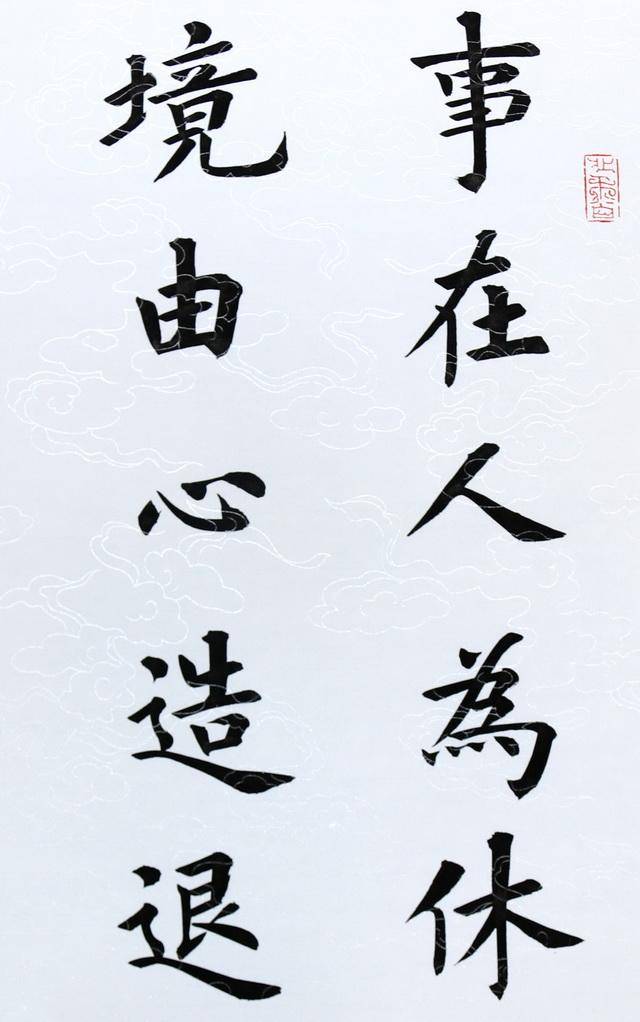 事在人為休
境由心造退